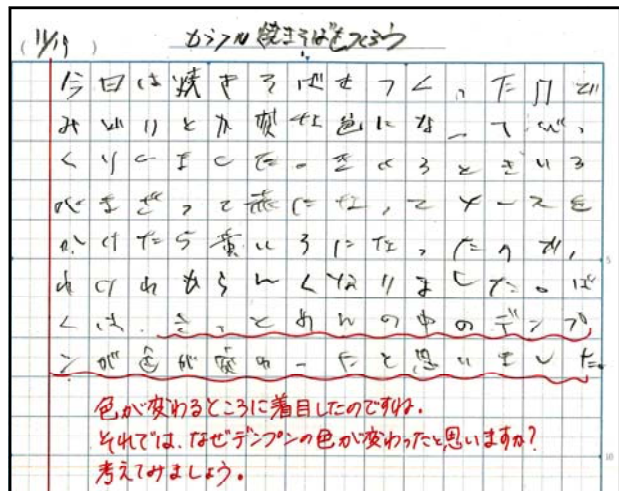 (11/19) カラフル焼きそばをつくろう
今日は焼きそばをつくったけど
みどりとか変な色になってび、
くりしました。さいしょときいろ
がまざって赤になってソースを
かけたら黄いろになったので、
わけわからんくなりました。ぼ
くは、きっとめんの中のデンプ
ンが色が変わったと思いました。
色が変わるところに着目したのですね。
それでは、なぜデンプンの色が変わったと思いますか?
考えてみましょう。
5
10